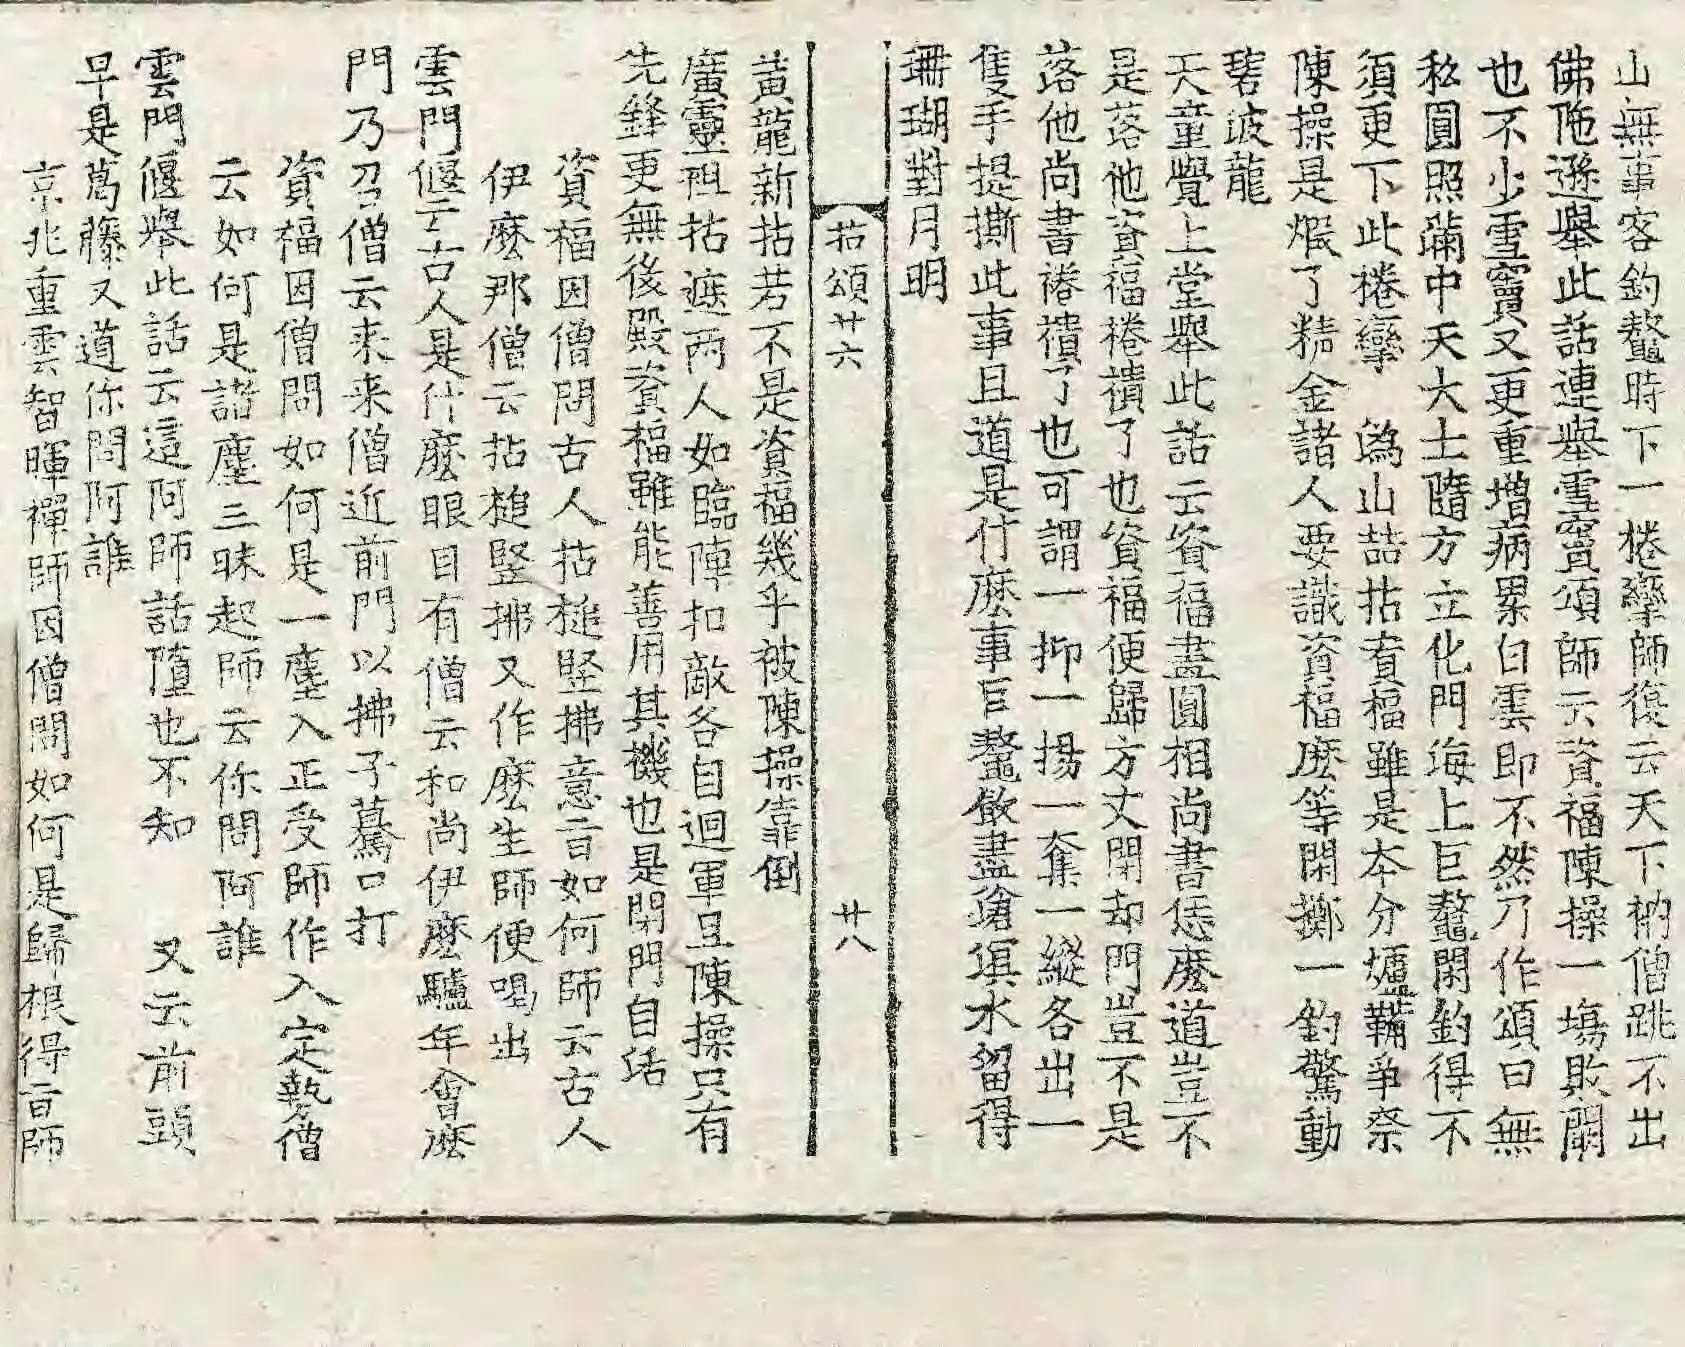 山無事客釣鼇時下一棬攣師復云天下衲僧跳不出
佛陁遜舉此話連舉雪竇頌師云資福陳操一塲敗闕
也不少雪竇又更重增病累白雲即不然乃作頌曰無
私圓照滿中天大士隨方立化門海上巨鼇閑釣得不
須更下此棬攣　溈山喆拈資福雖是本分爐鞴爭柰
陳操是煆了精金諸人要識資福麽等閑擲一釣驚動
碧波龍
天童覺上堂舉此話云資福畫圓相尚書恁麽道豈不
是落他資福棬䙡了也資福便歸方丈閉却門豈不是
落他尚書棬䙡了也可謂一抑一揚一奪一縱各出一
隻手提撕此事且道是什麽事巨鼇飮盡滄溟水留得
珊瑚對月明
拈頌廿六　廿八
黃龍新拈若不是資福幾乎被陳操靠倒
廣靈祖拈遮兩人如臨陣扣敵各自迴軍且陳操只有
先鋒更無後殿資福雖能善用其機也是閉門自活
資福因僧問古人拈槌竪拂意旨如何師云古人
伊麽那僧云拈槌竪拂又作麽生師便喝出
雲門偃云古人是什麽眼目有僧云和尚伊麽驢年會麽
門乃召僧云来来僧近前門以拂子驀口打
資福因僧問如何是一塵入正受師作入定勢僧
云如何是諸塵三昧起師云你問阿誰
雲門偃舉此話云這阿師話墮也不知　又云前頭
早是葛藤又道你問阿誰
京兆重雲智暉禪師因僧問如何是歸根得旨師